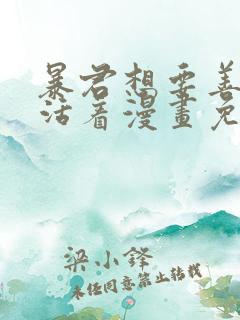 暴君想要善
活看漫畫免
梁小鋒
未经同意禁止转载